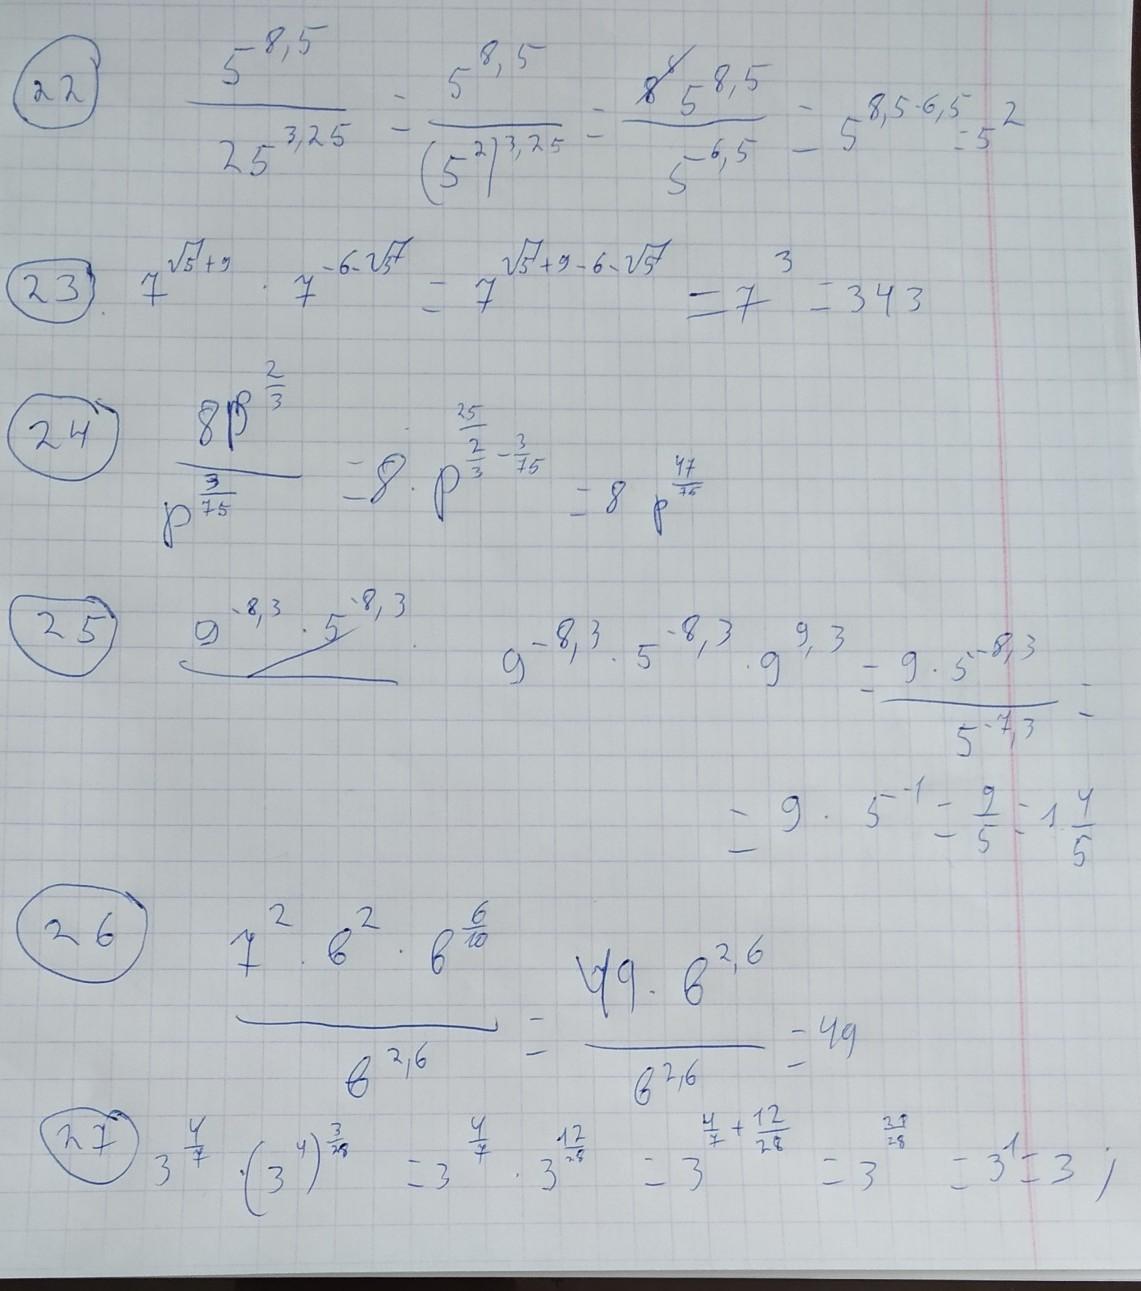 22 5^{8,5} / 25^{3,25} = 5^{8,5} / (5^2)^{3,25} = 5^{8,5} / 5^{6,5} = 5^{8,5-6,5} = 5^2
23. 7^{√5+9} · 7^{-6-√5} = 7^{√5+9-6-√5} = 7^3 = 343
24 8p^{2/3} / p^{3/75} = 8 · p^{25/ 2/3 - 3/75} = 8 p^{47/75}
25 9^{-8,3} · 5^{-8,3} 9^{-8,3} · 5^{-8,3} · 9^{9,3} = 9 · 5^{-8,3} / 5^{-7,3} =
= 9 · 5^{-1} = 9/5 = 1 4/5
26 7^2 · b^2 · b^{6/10} / b^{2,6} = 49 · b^{2,6} / b^{2,6} = 49
27 3^{4/7} · (3^4)^{3/28} = 3^{4/7} · 3^{12/28} = 3^{4/7 + 12/28} = 3^{28/28} = 3^1 = 3 ;